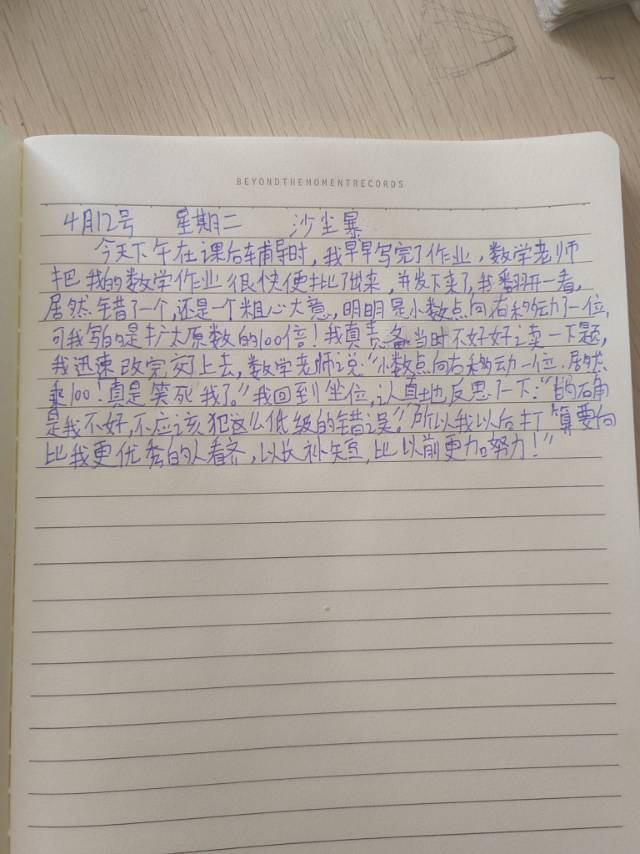 BEYONDTHEMOMENTRECORDS
4月12号 星期二 沙尘暴
今天下午在课后辅导时,我早早写完了作业,数学老师
把我的数学作业很快便批了出来,并发下来了,我翻开一看,
居然错了一个,还是一个粗心大意,明明是小数点向右移动了一位,
可我写的是扩大原数的100倍!我真责备当时不好好读一下题,
我迅速改完交上去,数学老师说:“小数点向右移动一位,居然
乘100!真是笑死我了。”我回到坐位,认真地反思了一下:“的确
是我不好,不应该犯这么低级的错误。”所以我以后打算要向
比我更优秀的人看齐,以长补短,比以前更加努力!”